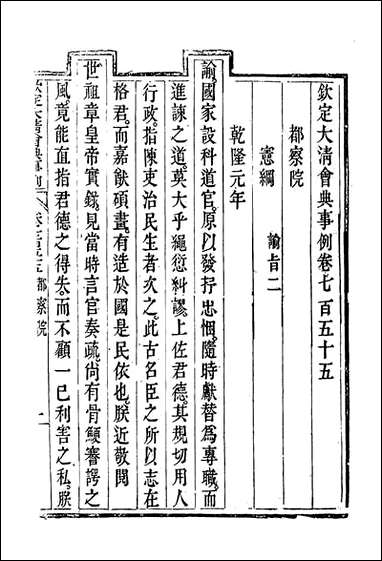 欽定大清會典事例卷七百五十五
都察院
憲綱 諭旨二
乾隆元年
諭。國家設科道官。原以發抒忠悃。隨時獻替為專職。而
進諫之道。莫大乎繩愆糾謬。上佐君德。其規切用人
行政。指陳吏治民生者次之。此古名臣之所以志在
格君。而嘉猷碩畫。有造於國是民依也。朕近敬閱
世祖章皇帝實錄。見當時言官奏疏。尚有骨鯁謇諤之
風。竟能直指君德之得失。而不顧一己利害之私。朕
欽定大清會典事例 卷七百五十五 都察院 一